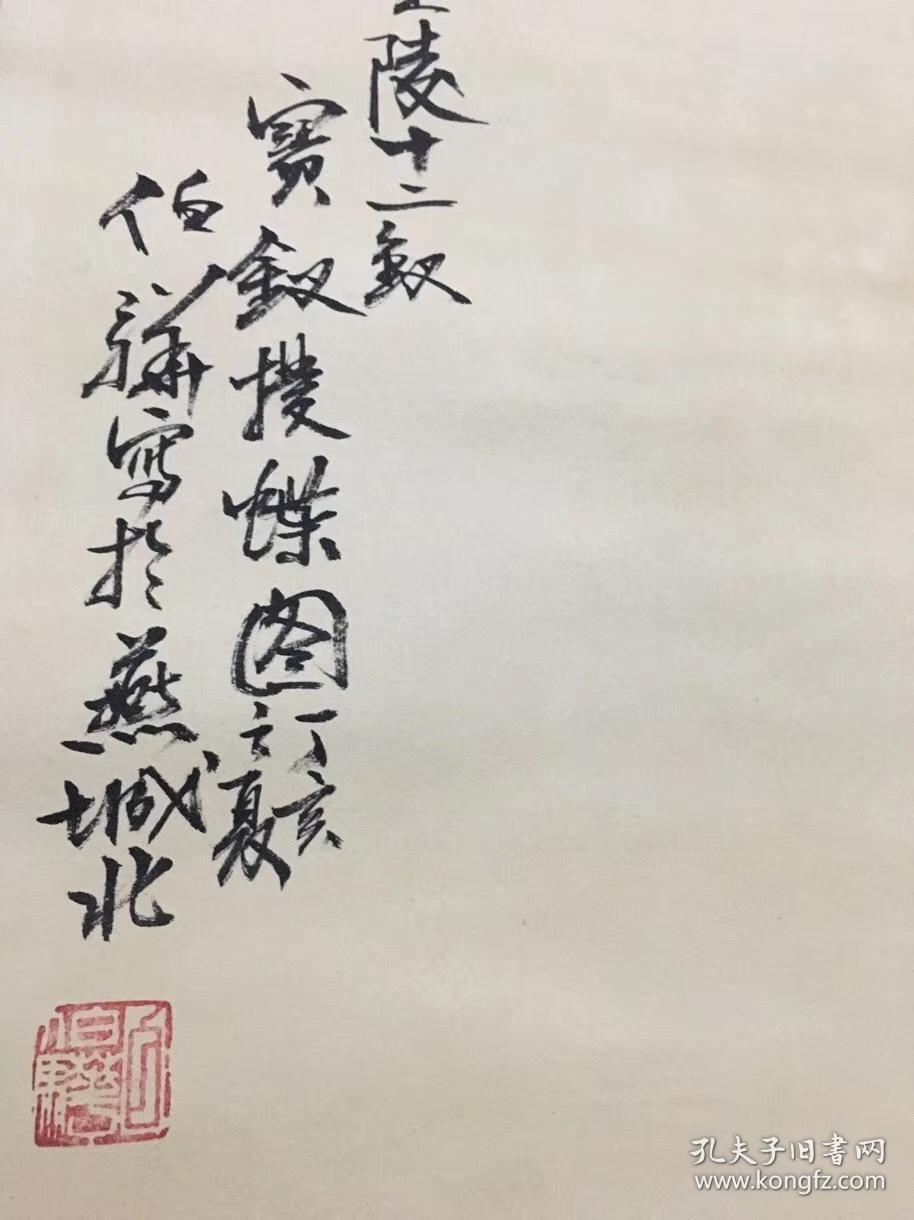 陵十二釵
寶釵撲蝶图丁亥之夏
伯驊寫於燕城北
孔夫子旧書网
www.kongfz.com